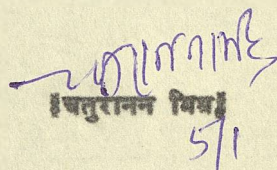 ॥चतुरानन मिश्र॥
5/1